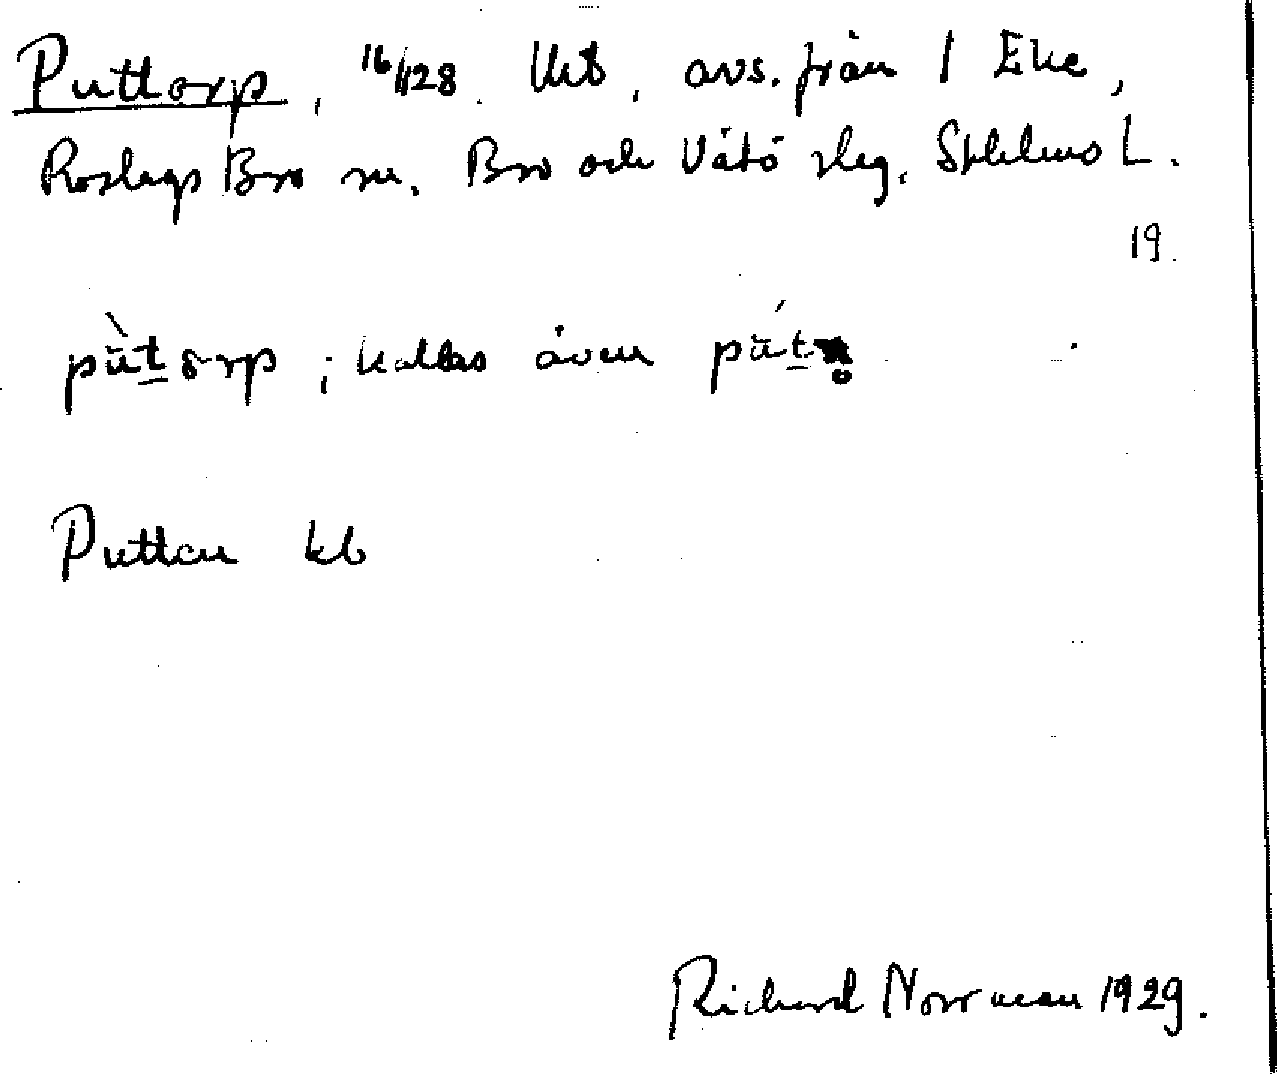 Puttorp, 16/128 Uts, avs. från 1 Eke,
Roslags Bro sn. Bro och Vätö skg. Sthlms L.
19.
pùtorp; kallas även pútn̥
Puttan kb
Richard Norrman 1929.